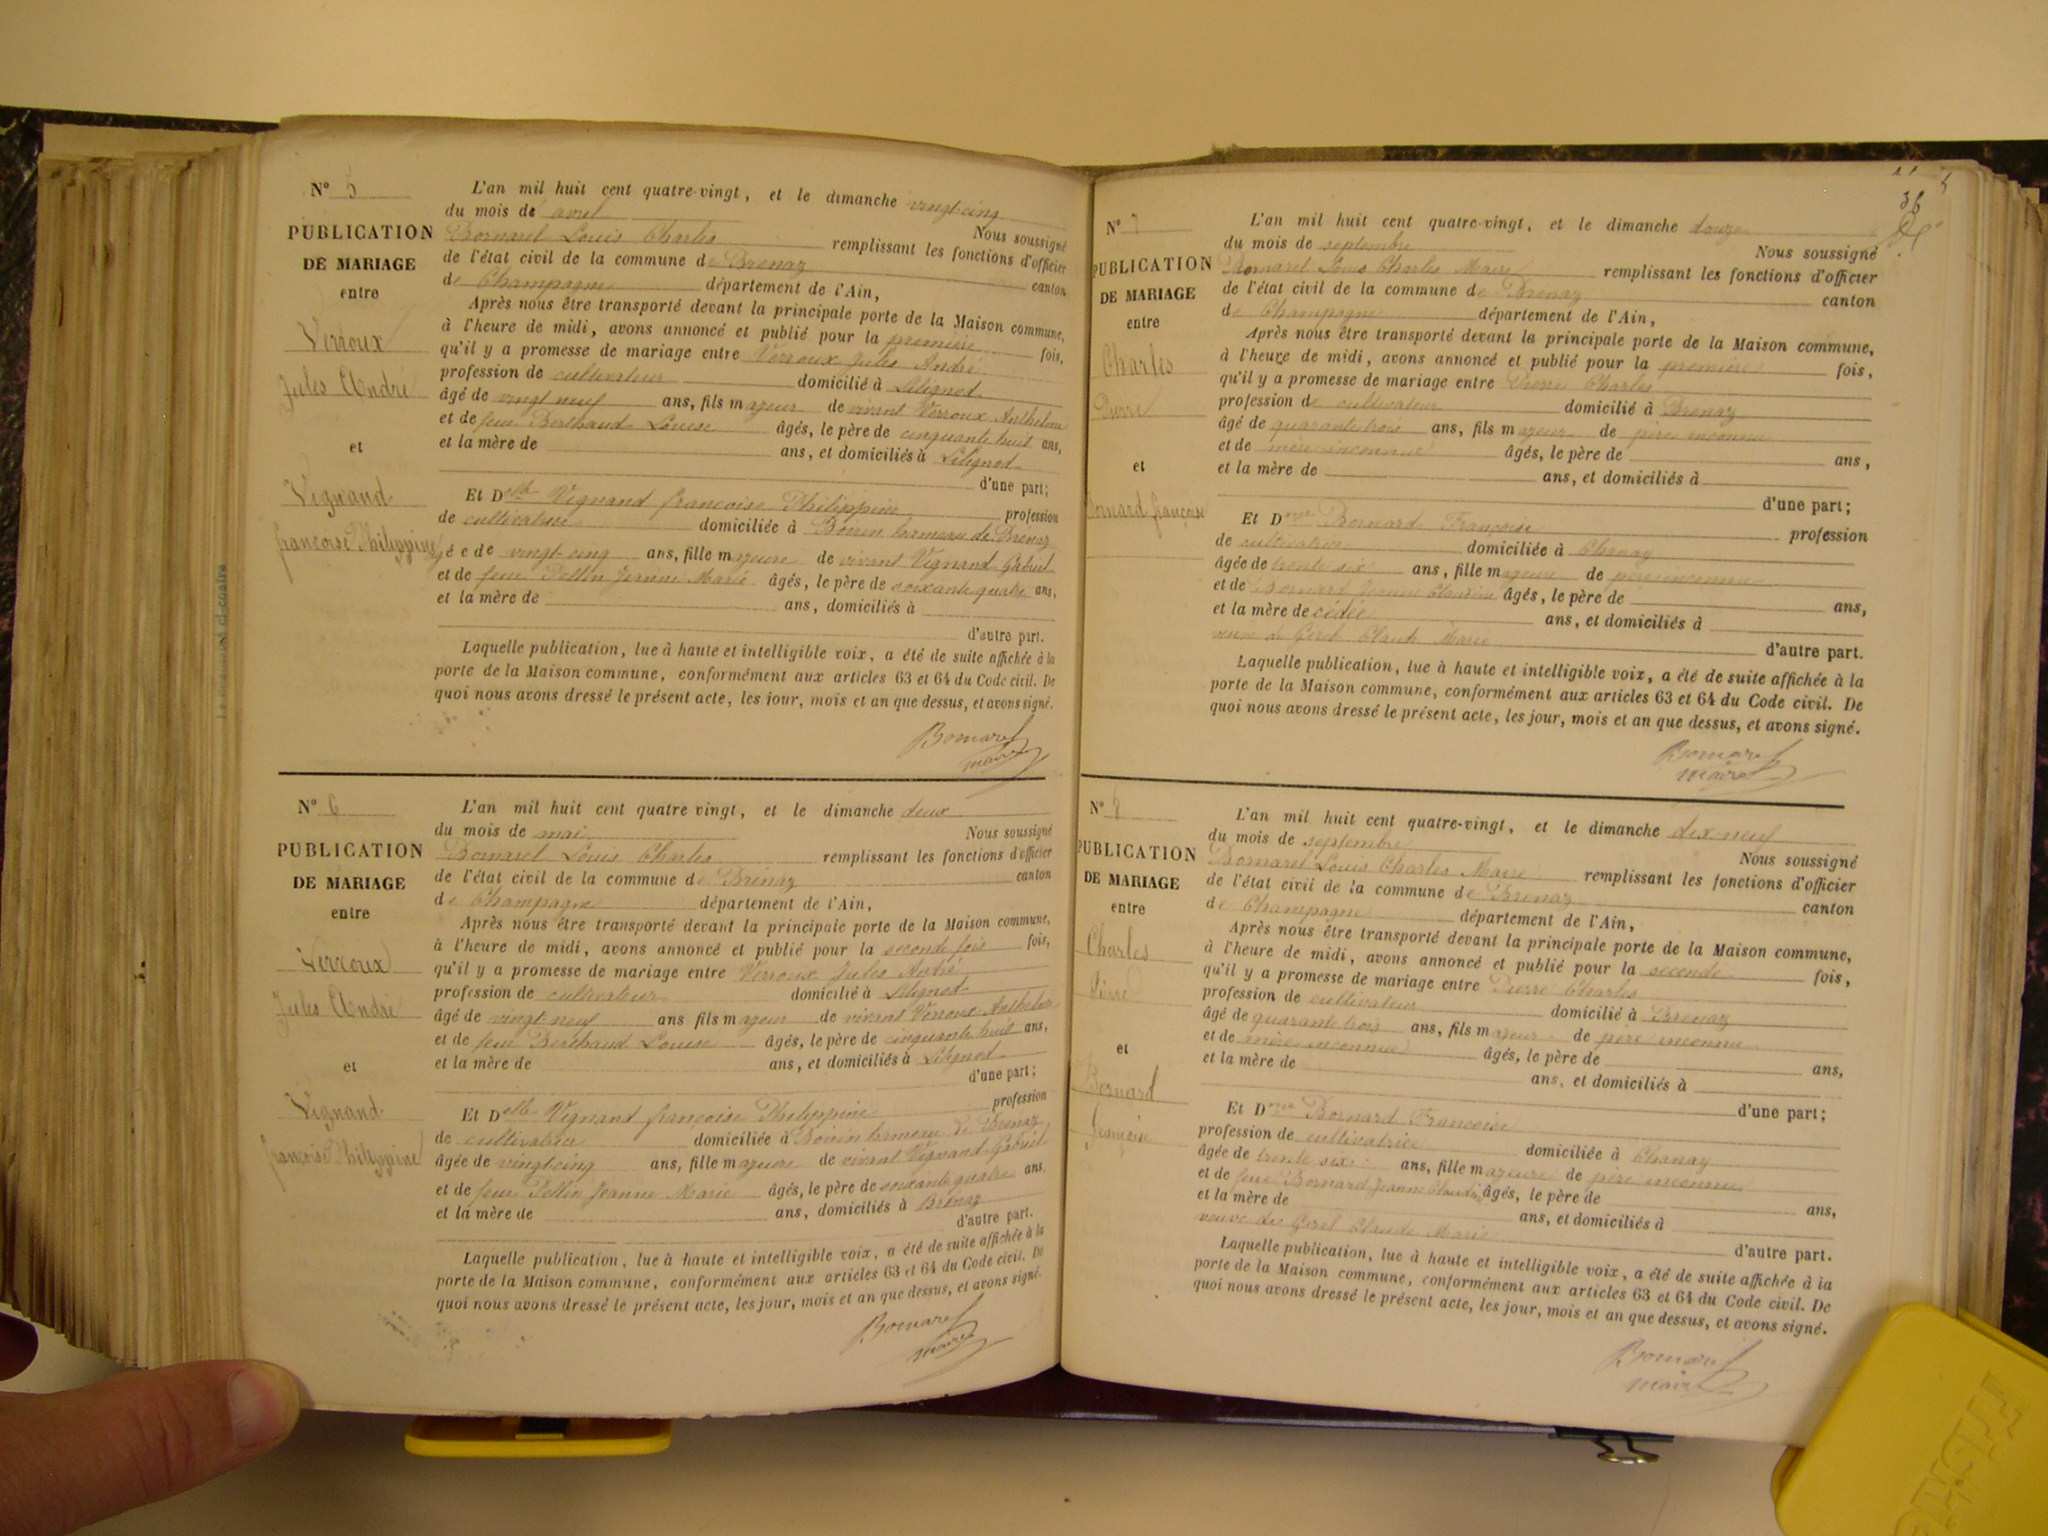 N° 5
PUBLICATION
DE MARIAGE
entre
Verroux
Jules André
et
Vignand
françoise Philippine
L'an mil huit cent quatre-vingt, et le dimanche vingt-cinq
du mois de avril Nous soussigné
Bornarel Louis Charles remplissant les fonctions d'officier
de l'état civil de la commune de Brénaz canton
de Champagne département de l'Ain,
Après nous être transporté devant la principale porte de la Maison commune,
à l'heure de midi, avons annoncé et publié pour la première fois,
qu'il y a promesse de mariage entre Verroux Jules André
profession de cultivateur domicilié à Lilignod
âgé de vingt neuf ans, fils majeur de vivant Verroux Anthelme
et de feue Berthaud Louise âgés, le père de cinquante huit ans,
et la mère de ans, et domiciliés à Lilignod
d'une part;
Et Delle Vignand françoise Philippine profession
de cultivatrice domiciliée à hameau de Brénaz
âgée de vingt-cinq ans, fille majeure de vivant Vignand Gabriel
et de feue Pellin Jeanne Marie âgés, le père de soixante quatre ans,
et la mère de ans, domiciliés à
d'autre part.
Laquelle publication, lue à haute et intelligible voix, a été de suite affichée à la
porte de la Maison commune, conformément aux articles 63 et 64 du Code civil. De
quoi nous avons dressé le présent acte, les jour, mois et an que dessus, et avons signé.
Bornarel
maire
N° 6
PUBLICATION
DE MARIAGE
entre
Verroux
Jules André
et
Vignand
françoise Philippine
L'an mil huit cent quatre vingt, et le dimanche deux
du mois de mai Nous soussigné
Bornarel Louis Charles remplissant les fonctions d'officier
de l'état civil de la commune de Brénaz canton
de Champagne département de l'Ain,
Après nous être transporté devant la principale porte de la Maison commune,
à l'heure de midi, avons annoncé et publié pour la seconde fois fois,
qu'il y a promesse de mariage entre Verroux Jules André
profession de cultivateur domicilié à Lilignod
âgé de vingt neuf ans fils majeur de vivant Verroux Anthelme
et de feue Berthaud Louise âgés, le père de cinquante huit ans,
et la mère de ans, et domiciliés à Lilignod
d'une part;
Et Delle Vignand françoise Philippine profession
de cultivatrice domiciliée à hameau de Brénaz
âgée de vingt cinq ans, fille majeure de vivant Vignand Gabriel
et de feue Pellin Jeanne Marie âgés, le père de soixante quatre ans
et la mère de ans, domiciliés à Brénaz
d'autre part.
Laquelle publication, lue à haute et intelligible voix, a été de suite affichée à la
porte de la Maison commune, conformément aux articles 63 et 64 du Code civil. De
quoi nous avons dressé le présent acte, les jour, mois et an que dessus, et avons signé.
Bornarel
maire
36
N° 7
PUBLICATION
DE MARIAGE
entre
Charles
Pierre
et
Bornard françoise
L'an mil huit cent quatre-vingt, et le dimanche douze
du mois de septembre Nous soussigné
Bornarel Louis Charles Maire remplissant les fonctions d'officier
de l'état civil de la commune de Brénaz canton
de Champagne département de l'Ain,
Après nous être transporté devant la principale porte de la Maison commune,
à l'heure de midi, avons annoncé et publié pour la première fois,
qu'il y a promesse de mariage entre Pierre Charles
profession de cultivateur domicilié à Brénaz
âgé de quarante trois ans, fils majeur de père inconnu
et de mère inconnue âgés, le père de ans,
et la mère de ans, et domiciliés à
d'une part;
Et Dme Bornard Françoise profession
de cultivatrice domiciliée à Chanay
âgée de trente six ans, fille majeure de père inconnu
et de Bornard Jeanne Claudine âgés, le père de ans,
et la mère de ans, et domiciliés à
veuve de Claude Marie d'autre part.
Laquelle publication, lue à haute et intelligible voix, a été de suite affichée à la
porte de la Maison commune, conformément aux articles 63 et 64 du Code civil. De
quoi nous avons dressé le présent acte, les jour, mois et an que dessus, et avons signé.
Bornarel
maire
N° 8
PUBLICATION
DE MARIAGE
entre
Charles
Pierre
et
Bornard
françoise
L'an mil huit cent quatre-vingt, et le dimanche dix neuf
du mois de septembre Nous soussigné
Bornarel Louis Charles Maire remplissant les fonctions d'officier
de l'état civil de la commune de Brénaz canton
de Champagne département de l'Ain,
Après nous être transporté devant la principale porte de la Maison commune,
à l'heure de midi, avons annoncé et publié pour la seconde fois,
qu'il y a promesse de mariage entre Pierre Charles
profession de cultivateur domicilié à Brénaz
âgé de quarante trois ans, fils majeur de père inconnu
et de mère inconnue âgés, le père de ans,
et la mère de ans, et domiciliés à
d'une part;
Et Dme Bornard Françoise
profession de cultivatrice domiciliée à Chanay
âgée de trente six ans, fille majeure de père inconnu
et de feue Bornard Jeanne Claudine âgés, le père de ans,
et la mère de ans, et domiciliés à
veuve de Claude Marie d'autre part.
Laquelle publication, lue à haute et intelligible voix, a été de suite affichée à la
porte de la Maison commune, conformément aux articles 63 et 64 du Code civil. De
quoi nous avons dressé le présent acte, les jour, mois et an que dessus, et avons signé.
Bornarel
maire